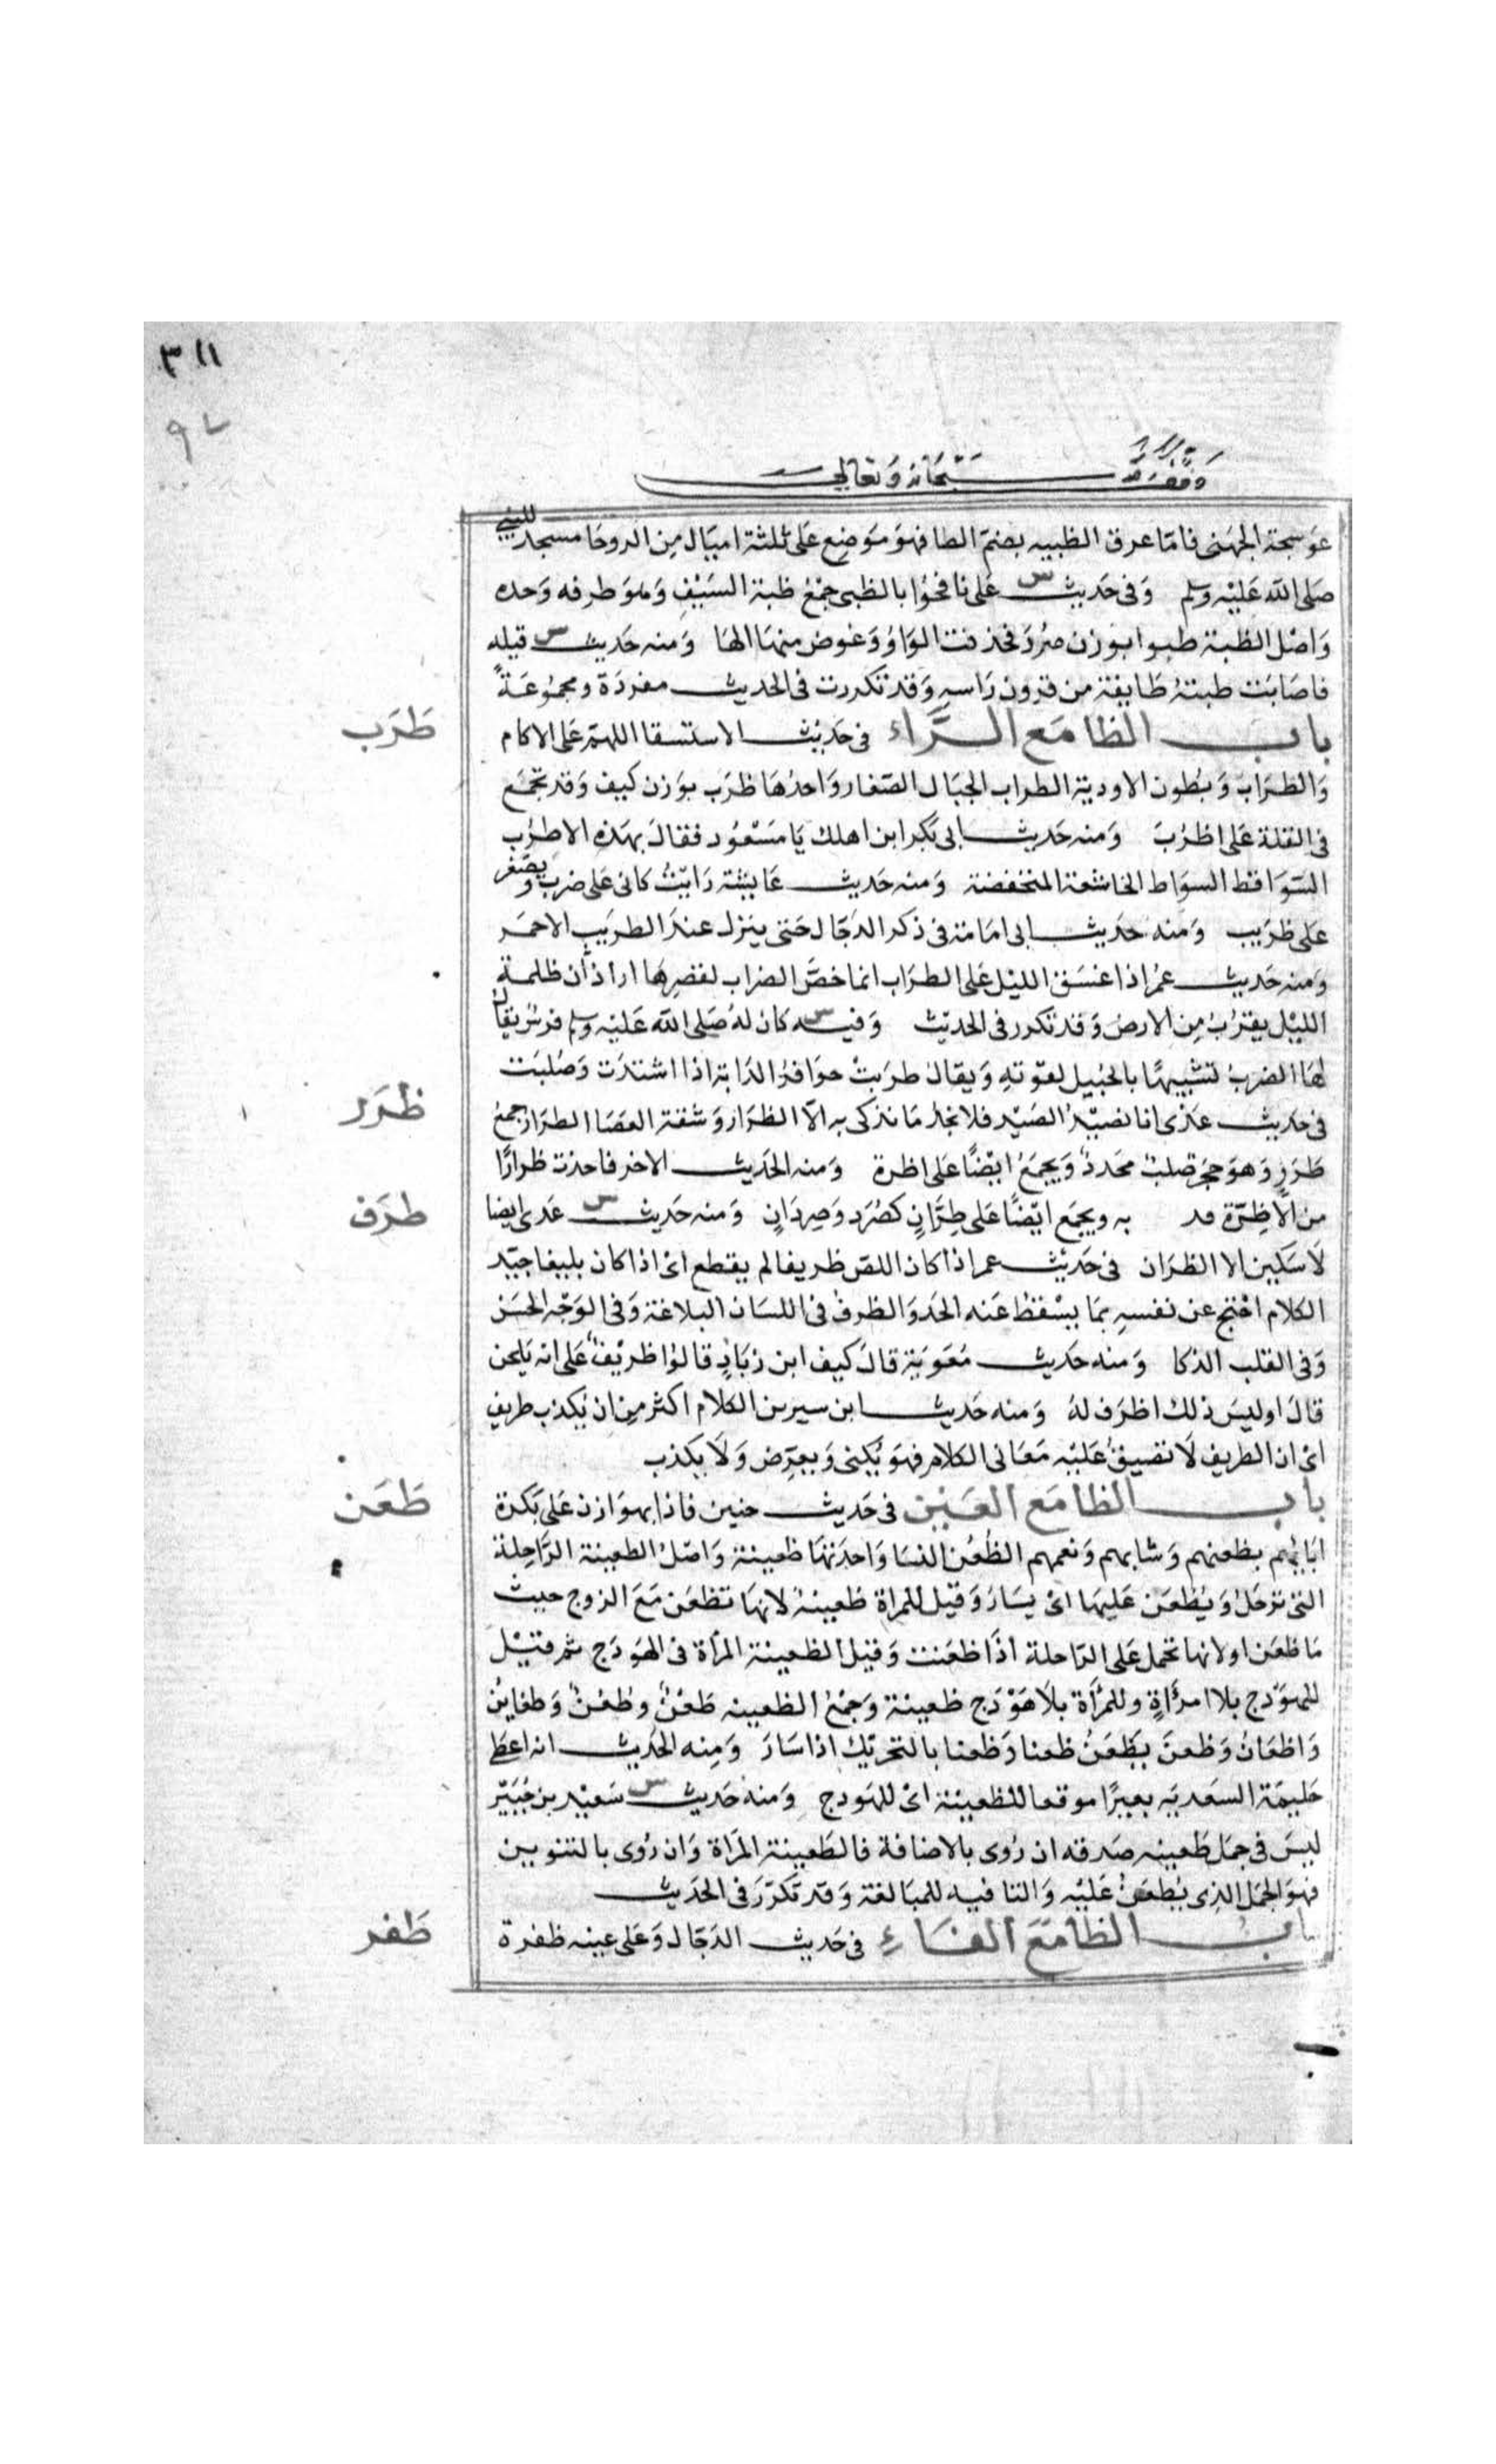 ٣١١
٩٧
وقف لله سبحانه وتعالى
عوسجة الجهنى فامّا عرق الظبيه بضمّ الظا فهو موضع على ثلثة اميال من الروحا مسجد للنبى
صلى الله عليه وسلم وفى حديث س على نافحوا بالظبى جمع ظبة السيف وهو طرفه وحده
واصل الظبة ظبوا بوزن صرد فحذفت الواو وعوض منها الها ومنه حديث س قيله
فاصابت ظبتهُ طايفة من قرون راسه وقد تكررت فى الحديث مفردة ومجموعةً
باب الظا مع الرّاء فى حديث الاستسقا اللهمّ على الاكام
ظَرَب
والظراب وبطون الاودية الظراب الجبال الصغار واحدها ظرب بوزن كيف وقد تجمع
فى القلة على اظرب ومنه حديث ابى بكر ابن اهلك يا مسعود فقال بهذه الاظرب
السواقط السواط الخاشعة المنخفضة ومنه حديث عايشة رايتُ كانى على ضرب ويصغر
على ظريب ومنه حديث ابى امامة فى ذكر الدجّال حتى ينزل عند الظريب الاحمر
ومنه حديث عمر اذا غسق الليل على الظراب انما خصّ الضراب لقصرها اراد ان ظلمة
الليل يقترب من الارض وقد تكرر فى الحديث وفيه س كان له صلى الله عليه وسلم فرس يقال
لها الضرب تشبيهًا بالجبيل لقوته ويقال ظربت حوافر الدابة اذا اشتدت وصلبت
ظَرَر
فى حديث عدى انا نصيد الصيد فلا نجد ما نذكى به الّا الظرار وشقة العصا الظرار جمع
ظرر وهو حجر صلب محدد ويجمع ايضًا على اظرة ومنه الحديث الاخر فاخذت ظرارًا
من الاظِرّة فد به ويجمع ايضًا على ظِرّانٍ كصُرَد وصِردَانٍ ومنه حديث س عدى ايضا
طرَف
لا سكين الا الظران فى حديث عمر اذا كان اللصّ ظريفا لم يقطع اى اذا كان بليغا جيّد
الكلام احتج عن نفسه بما يسقط عنه الحد والظرف فى اللسان البلاغة وفى الوجه الحسن
وفى القلب الذكا ومنه حديث معوية قال كيف ابن زياد قالوا ظريف على انه يلحن
قال اوليس ذلك اظرف له ومنه حديث ابن سيرين الكلام اكثر من ان يكذب ظريف
اى ان الظريف لا تضيق عليه معانى الكلام فهو يكنى ويعرّض ولا يكذب
باب الظا مع العين فى حديث حنين فاذا بهوازن على بكرة
ظَعَن
ابايهم بظعنهم وشايهم ونعمهم الظعن النسا واحدتها ظعينة واصل الظعينة الراحلة
التى ترحل ويظعن عليها اى يسار وقيل للمراة ظعينة لانها تظعن مع الزوج حيث
ما ظعن او لانها تحمل على الراحلة اذا ظعنت وقيل الظعينة المرأة فى الهودج ثمر قيل
للهودج بلا امرأة وللمرأة بلا هودج ظعينة وجمع الظعينه ظعْنٌ وظُعُنٌ وظعاين
واظعان وظعن يظعن ظعنا وظعنا بالتحريك اذا سار ومنه الحديث انه اعطى
حليمة السعديه بعيرًا موقعا للظعينة اى للهودج ومنه حديث س سعيد بن جُبَيّر
ليس فى جمل ظعينه صدقه ان روى بالاضافة فالظعينة المراة وان روى بالتنوين
فهو الجمل الذى يظعن عليه والتا فيه للمبالغة وقد تكرّر فى الحديث
باب الظا مع الفاء فى حديث الدجّال وعلى عينه ظفرة
ظَفر